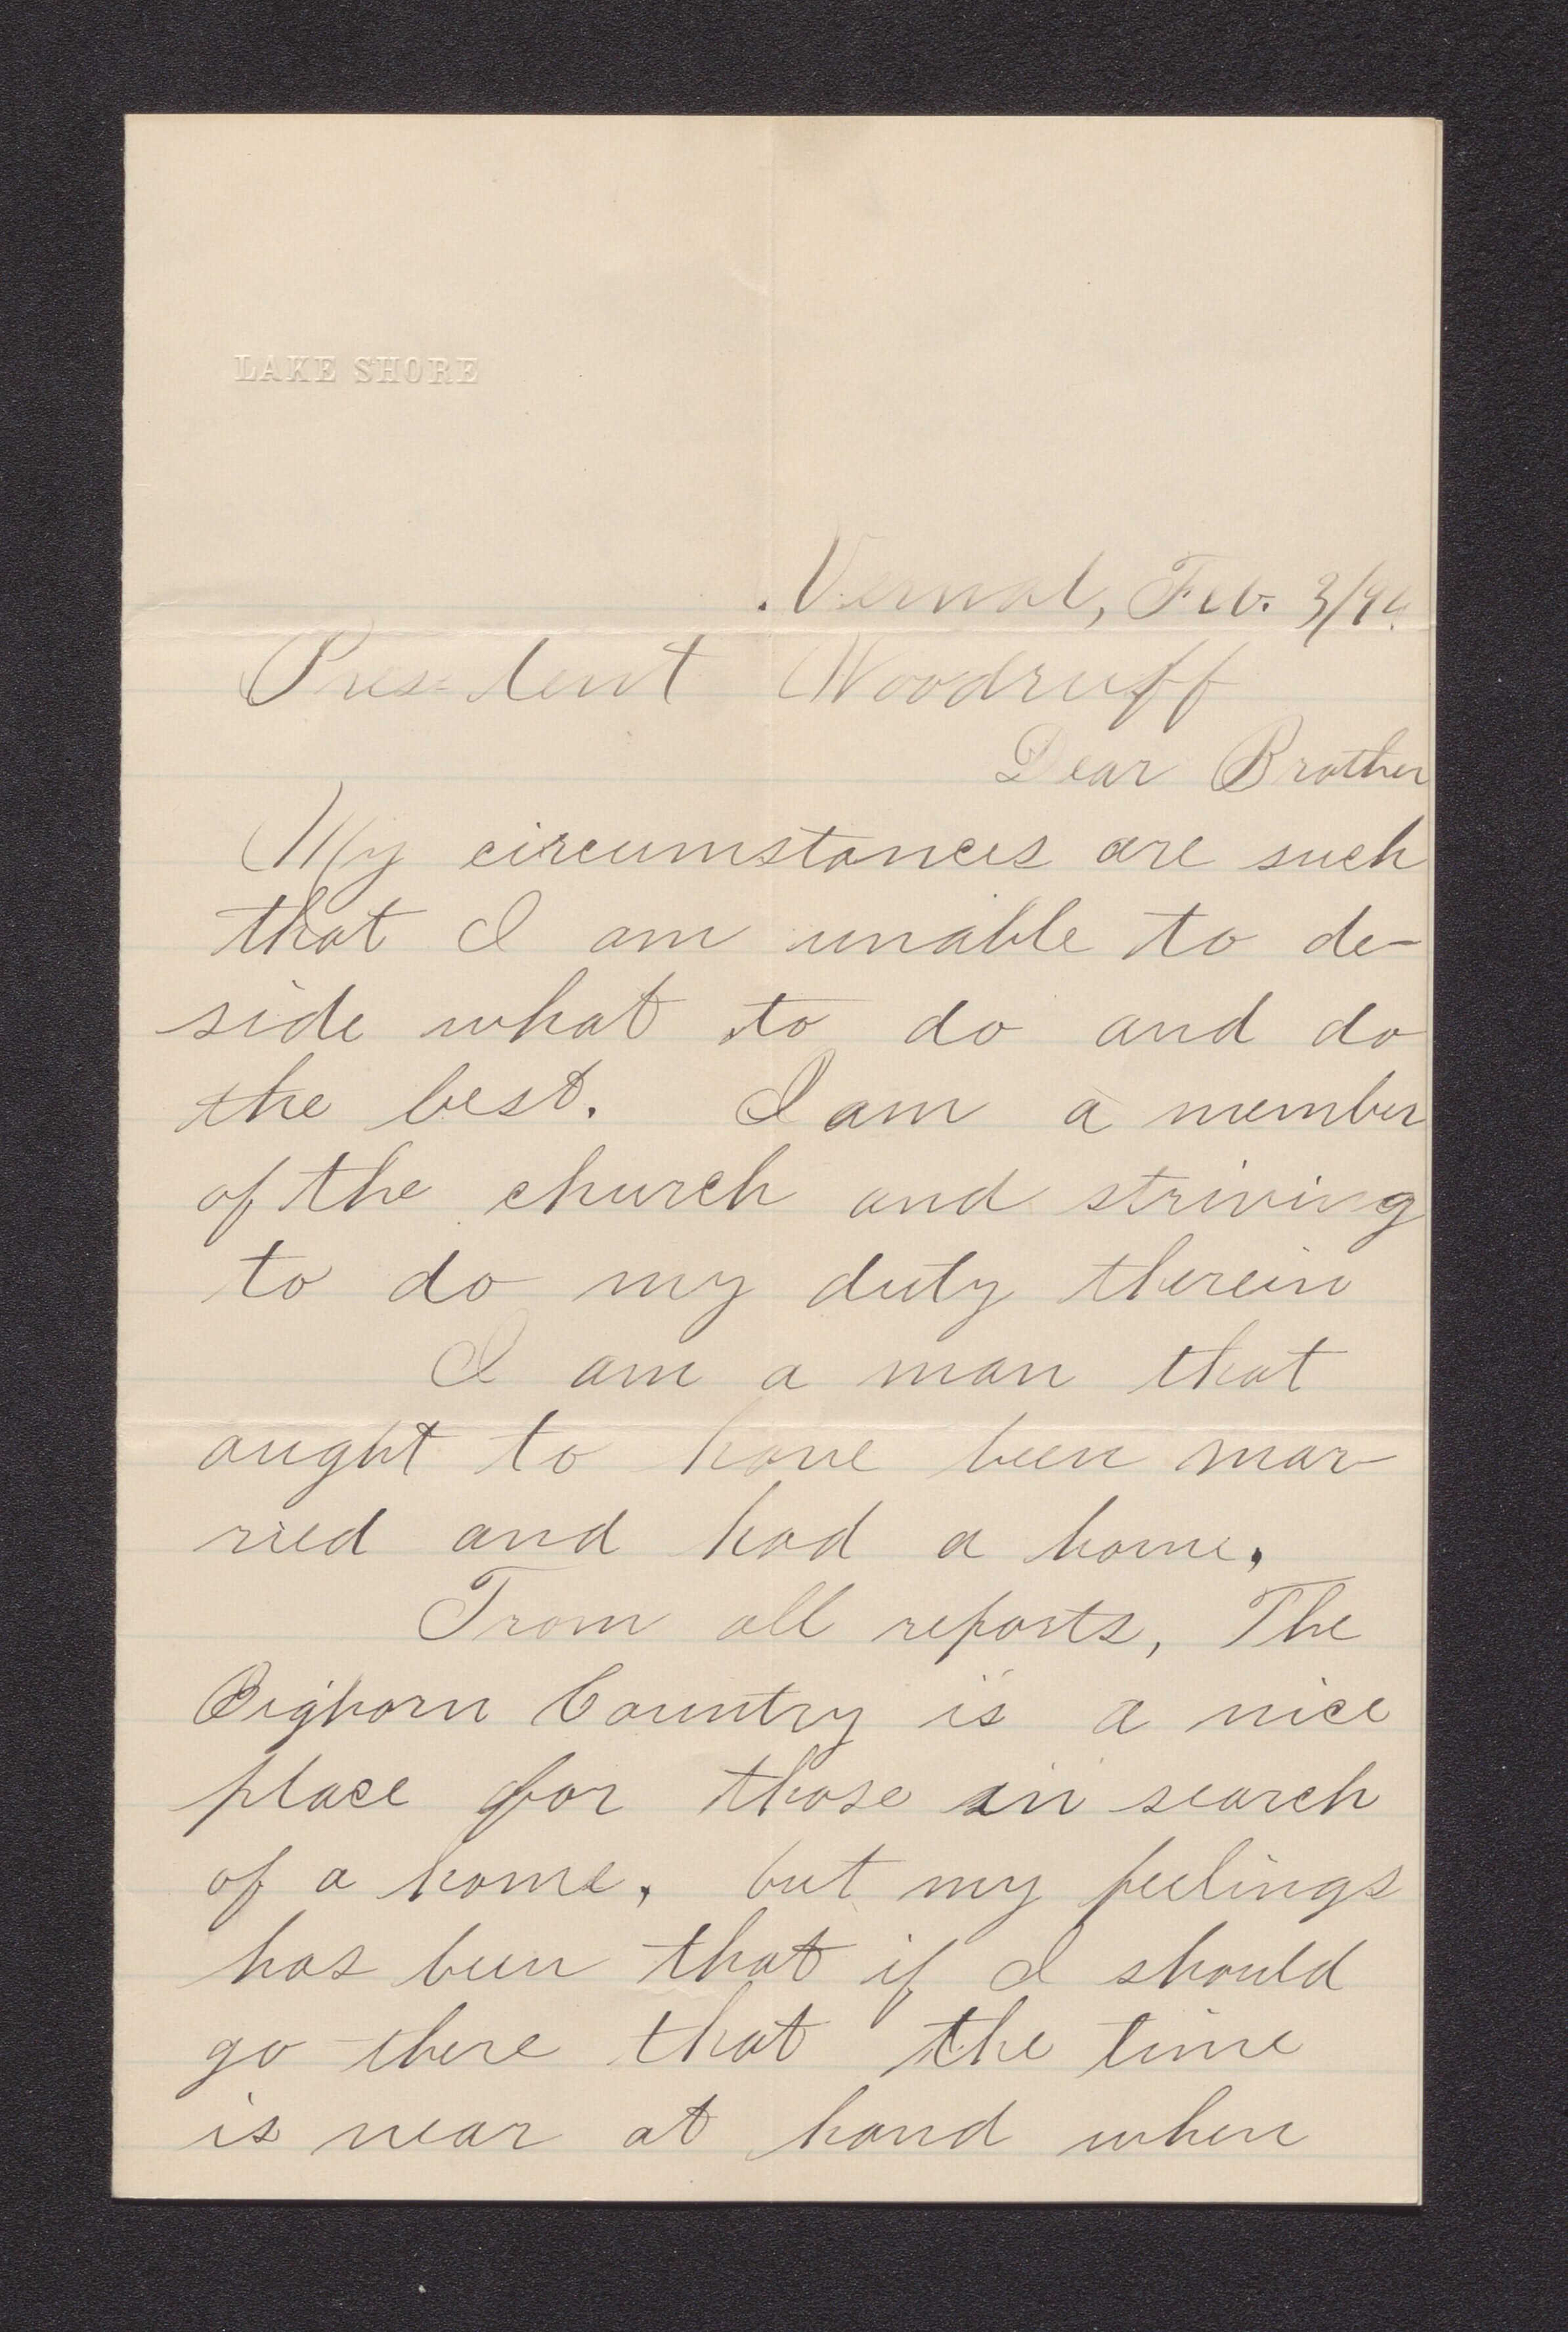 LAKE SHORE
Vernal, Feb. 3/94.
President Woodruff
Dear Brother
My circumstances are such
that I am unable to de-
side what to do and do
the best. I am a member
of the church and striving
to do my duty therein
I am a man that
ought to have been mar-
ried and had a home.
From all reports, The
Bighorn Country is a nice
place for those in search
of a home, but my feelings
has been that if I should
go there that the time
is near at hand when